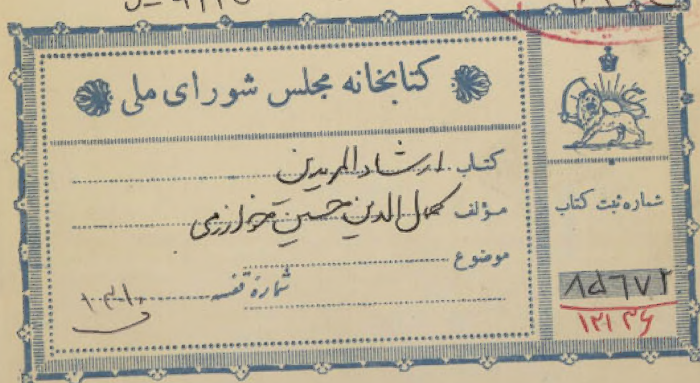 کتابخانه مجلس شورای ملی
کتاب ارشاد المریدین
مؤلف کمال الدین حسین خوارزمی
موضوع
شمارهٔ قفسه
شماره ثبت کتاب
۸۵۶۷۲
۱۲۱۳۶